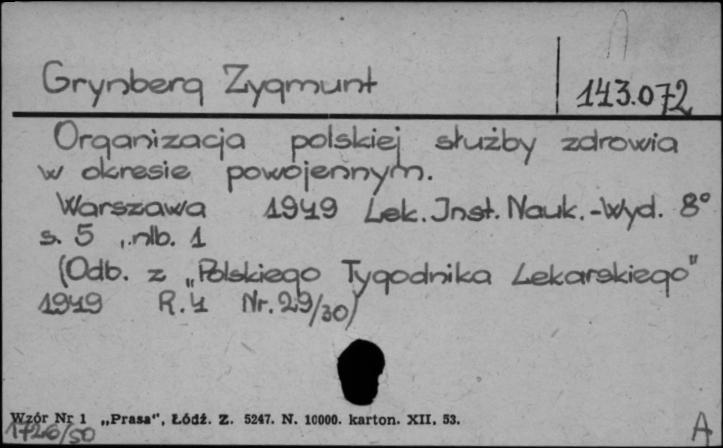 Grynberg Zygmunt
143.072
Organizacja polskiej służby zdrowia
w okresie powojennym.
Warszawa 1949 Lek. Inst. Nauk.-Wyd. 8°
s. 5 , nlb. 1
(Odb. z „Polskiego Tygodnika Lekarskiego"
1949 R.4 Nr. 29/30)
Wzór Nr 1 „Prasa", Łódź. Z. 5247. N. 10000. karton. XII. 53.
1726/50
A